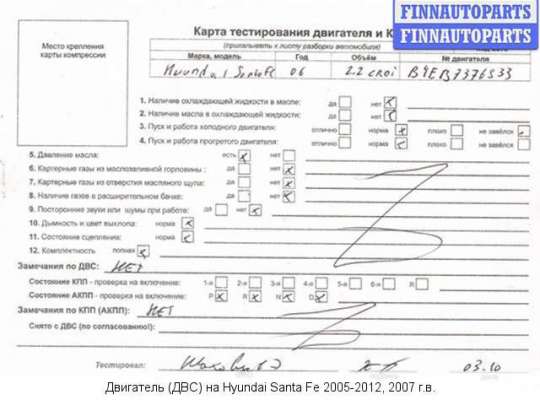 FINNAUTOPARTS
FINNAUTOPARTS
FINNAUTOPARTS
Карта тестирования двигателя и К
(прилагать к листу разборки автомобиля)
Место крепления карты компрессии
Марка, модель Год Объём № двигателя
Hyundai SantaFe 06 2.2 CRDi
1. Наличие охлаждающей жидкости в масле: да нет
2. Наличие масла в охлаждающей жидкости: да нет
3. Пуск и работа холодного двигателя: отлично норма плохо не завёлся
4. Пуск и работа прогретого двигателя: отлично норма плохо не завёлся
5. Давление масла: есть нет
6. Картерные газы из маслозаливной горловины: да нет
7. Картерные газы из отверстия масляного щупа: да нет
8. Наличие газов в расширительном бачке: да нет
9. Посторонние звуки или шумы при работе: да нет
10. Дымность и цвет выхлопа: норма
11. Состояние сцепления: норма
12. Комплектность полная
Замечания по ДВС: НЕТ
Состояние КПП - проверка на включение: 1-я 2-я 3-я 4-я 5-я 6-я R
Состояние АКПП - проверка на включение: P R N D
Замечания по КПП (АКПП): НЕТ
Снято с ДВС (по согласованию):
Тестировал: 03.10
Двигатель (ДВС) на Hyundai Santa Fe 2005-2012, 2007 г.в.